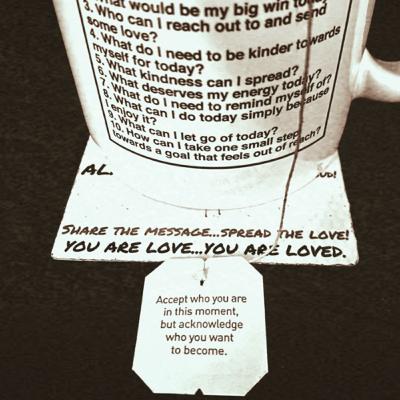 What would be my big win today?
3. Who can I reach out to and send
some love?
4. What do I need to be kinder towards
myself for today?
5. What kindness can I spread?
6. What deserves my energy today?
7. What do I need to remind myself of?
8. What can I do today simply because
I enjoy it?
9. What can I let go of today?
10. How can I take one small step
towards a goal that feels out of reach?
AL.
UD!
SHARE THE MESSAGE...SPREAD THE LOVE!
YOU ARE LOVE...YOU ARE LOVED.
Accept who you are
in this moment,
but acknowledge
who you want
to become.